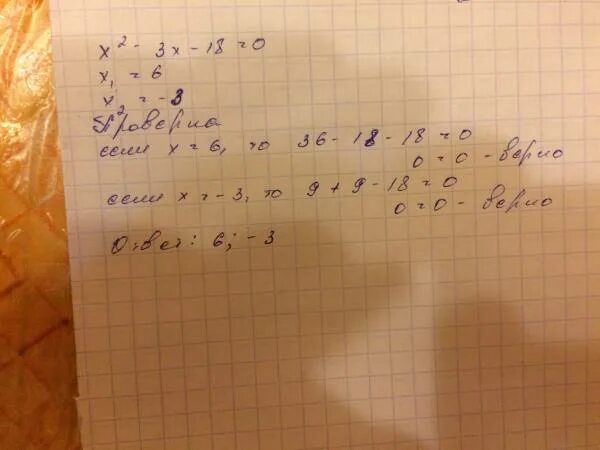 x² - 3x - 18 = 0
x₁ = 6
x₂ = -3
Проверка
если x = 6, то 36 - 18 - 18 = 0
0 = 0 - верно
если x = -3, то 9 + 9 - 18 = 0
0 = 0 - верно
Ответ: 6; -3